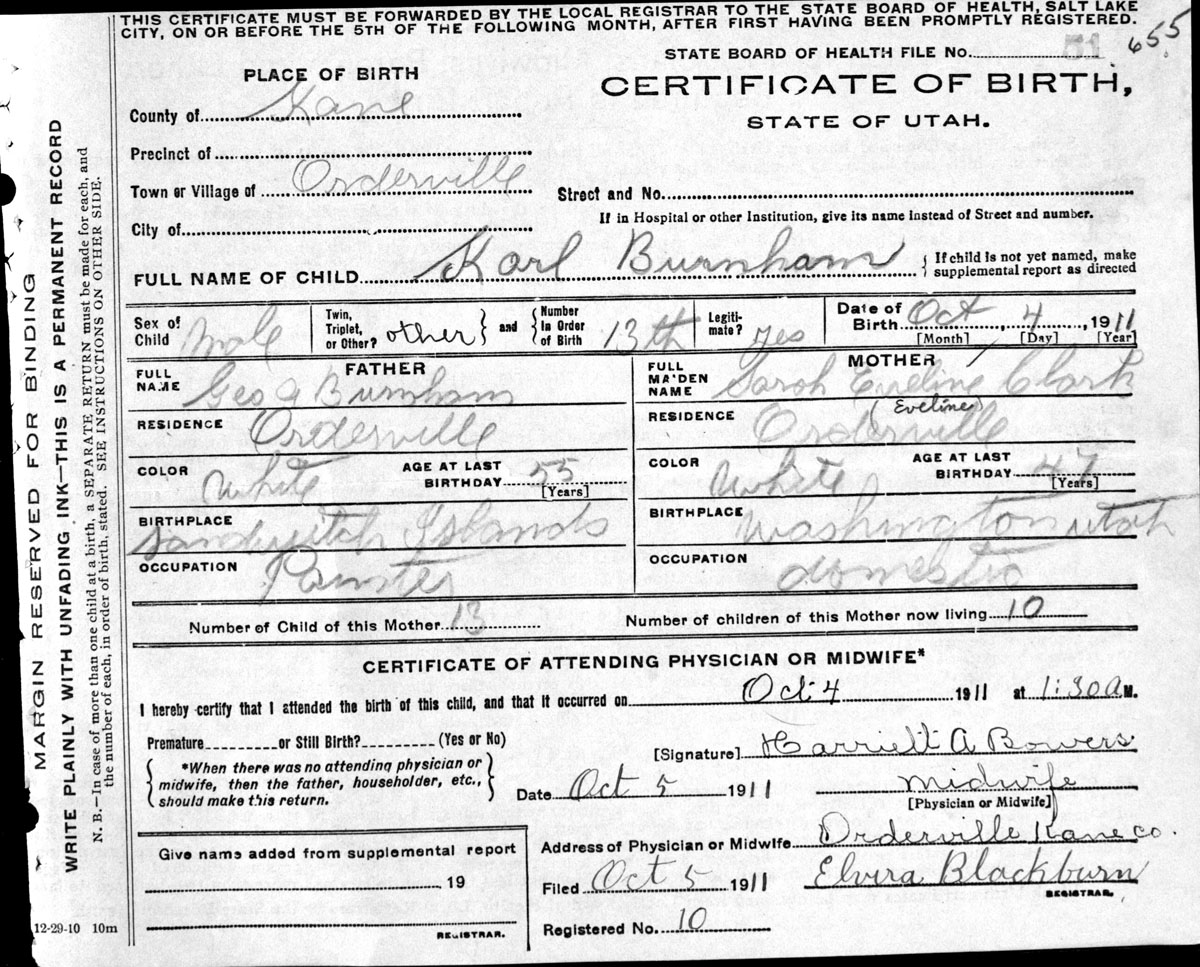 THIS CERTIFICATE MUST BE FORWARDED BY THE LOCAL REGISTRAR TO THE STATE BOARD OF HEALTH, SALT LAKE
CITY, ON OR BEFORE THE 5TH OF THE FOLLOWING MONTH, AFTER FIRST HAVING BEEN PROMPTLY REGISTERED.
655
STATE BOARD OF HEALTH FILE No. 51
PLACE OF BIRTH
CERTIFICATE OF BIRTH,
STATE OF UTAH.
County of Kane
Precinct of
Town or Village of Orderville
Street and No.
If in Hospital or other Institution, give its name instead of Street and number.
City of
FULL NAME OF CHILD Karl Burnham { If child is not yet named, make
supplemental report as directed
Sex of Child Male Twin, Triplet, or Other? other } and { Number In Order of Birth 13th Legiti-mate? yes Date of Birth Oct, 4, 1911
[Month] [Day] [Year]
FATHER
MOTHER
FULL NAME Geo A Burnham
FULL MAIDEN NAME Sarah Eveline Clark
(Eveline)
RESIDENCE Orderville
RESIDENCE Orderville
COLOR White AGE AT LAST BIRTHDAY 55 [Years]
COLOR White AGE AT LAST BIRTHDAY 47 [Years]
BIRTHPLACE Sandwitch Islands
BIRTHPLACE Washington Utah
OCCUPATION Painter
OCCUPATION domestic
Number of Child of this Mother 13
Number of children of this Mother now living 10
CERTIFICATE OF ATTENDING PHYSICIAN OR MIDWIFE*
I hereby certify that I attended the birth of this child, and that it occurred on Oct 4 1911 at 1:30 A M.
Premature or Still Birth? (Yes or No)
{ *When there was no attending physician or
midwife, then the father, householder, etc.,
should make this return. }
[Signature] Harriett A Bowers
Date Oct 5 1911 Midwife
[Physician or Midwife]
Address of Physician or Midwife Orderville Kane co.
Filed Oct 5 1911 Elvira Blackburn
REGISTRAR.
Registered No. 10
Give name added from supplemental report
, 19
REGISTRAR.
12-29-10 10m
MARGIN RESERVED FOR BINDING
WRITE PLAINLY WITH UNFADING INK—THIS IS A PERMANENT RECORD
N. B.—In case of more than one child at a birth, a SEPARATE RETURN must be made for each, and
the number of each, in order of birth, stated. SEE INSTRUCTIONS ON OTHER SIDE.